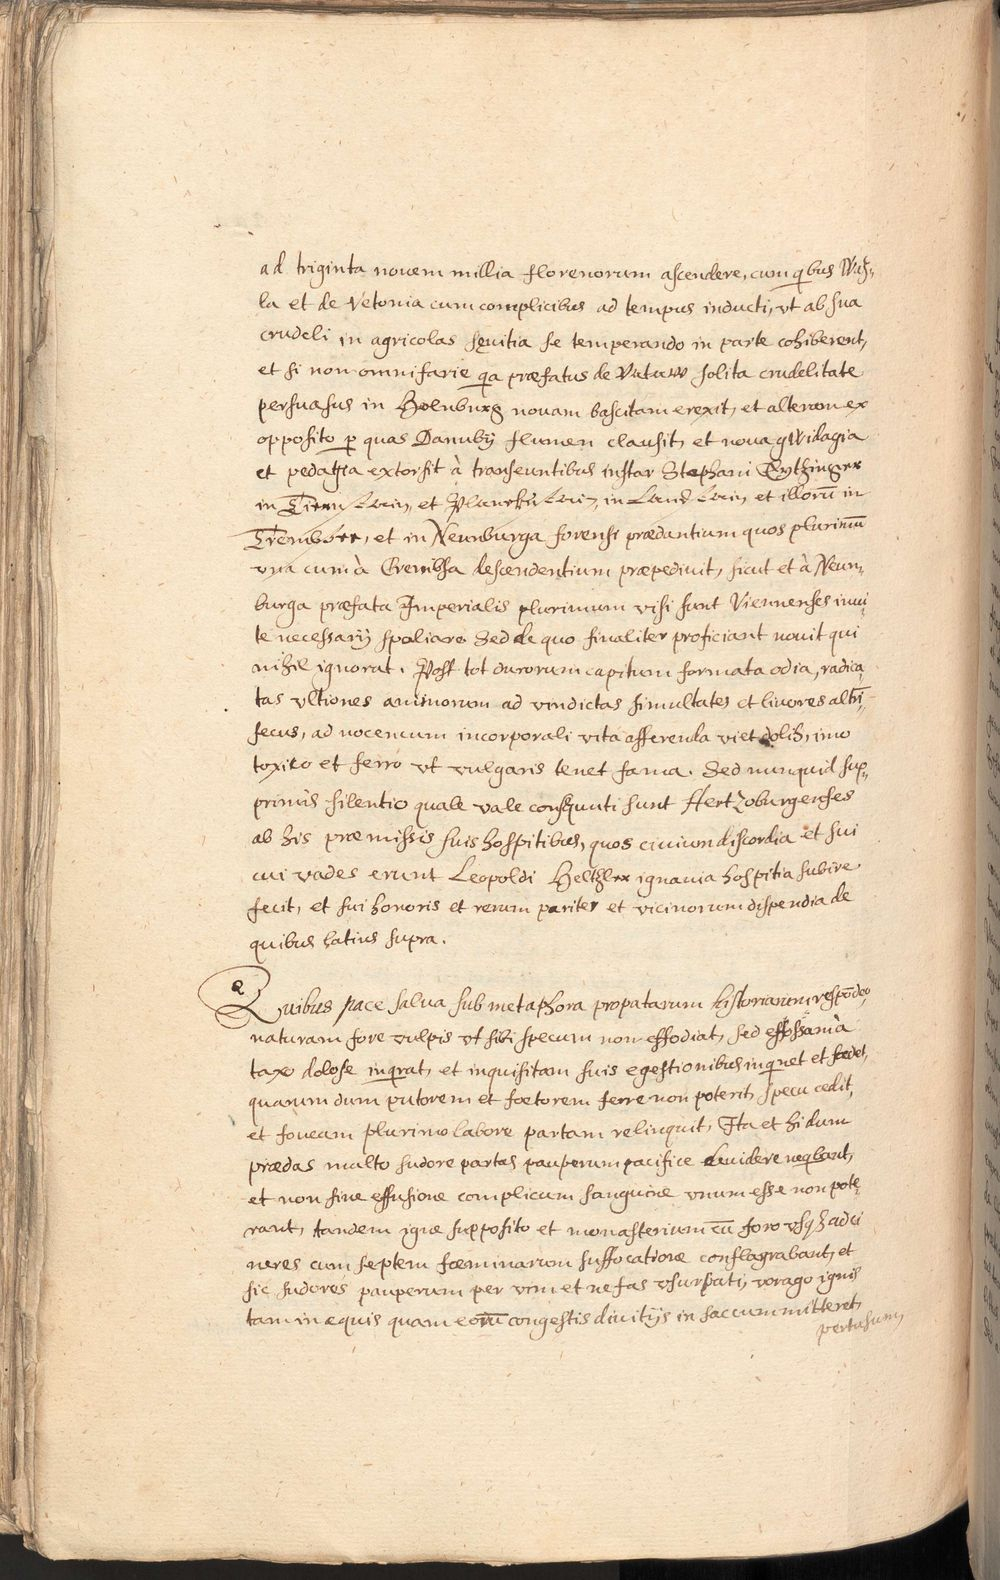 ad triginta nouem millia florenorum ascendere, cum qbus Wuh-
la et de Vetonia cum complicibus ad tempus inducti, vt ab sua
crudeli in agricolas sęuitia se temperando in parte cohiberent,
et si non omnifarie qa præfatus de Vutaw solita crudelitate
persuasus in Holnburg nouam bascitam erexit, et alteram ex
opposito p quas Danubij flumen clausit, et noua gwidagia
et pedagia extorsit à transeuntibus instar Stephani Eytzinger
in et in et illorū in
et in Neunburga forensi prædantium quos plurimū
vna cum à Crembsa descendentium præpediuit, sicut et à Neun-
burga præfata Imperialis plurimum visi sunt Viennenses inui-
te necessarij spoliare. Sed de quo finaliter proficiant nouit qui
nihil ignorat. Post tot durorum capitum formata odia, radica-
tas vltiones animorum ad vindictas simultates et liuores altri-
secus, ad nocendum incorporali vita afferenda viet dolis, imo
toxico et ferro vt vulgaris tenet fama. Sed nunquid sup-
primis silentio quale vale consquuti sunt Hertzoburgenses
ab his præmissis suis hospitibus, quos ciuium discordia et sui
cui vades erunt Leopoldi Heltzler ignauia hospitia subire
fecit, et sui honoris et rerum pariter et vicinorum dispendia de
quibus latius supra.
Quibus pace salua sub metaphora propatarum historiarum respōdeo
naturam fore vulpis vt sibi specum non effodiat, sed effossam à
taxo dolose inqrat, et inquisitam suis egestionibus inqnet et fœdet,
quarum dum putorem et fœtorem ferre non poterit, specu cedit,
et foueam plurimo labore partam relinquit, Ita et hi dum
prædas multo sudore partas pauperum pacifice diuidere neqbant,
et non sine effusione complicum sanguine vnum esse non pote-
rant, tandem igne supposito et monasterium cū foro vsqz ad ci
neres cum septem fœminarum suffocatione conflagrabant, et
sic sudores pauperum per vim et nefas vsurpati, vorago ignis
tam in equis quam eorū congestis diuitijs in saccum mitteret
pertusum,